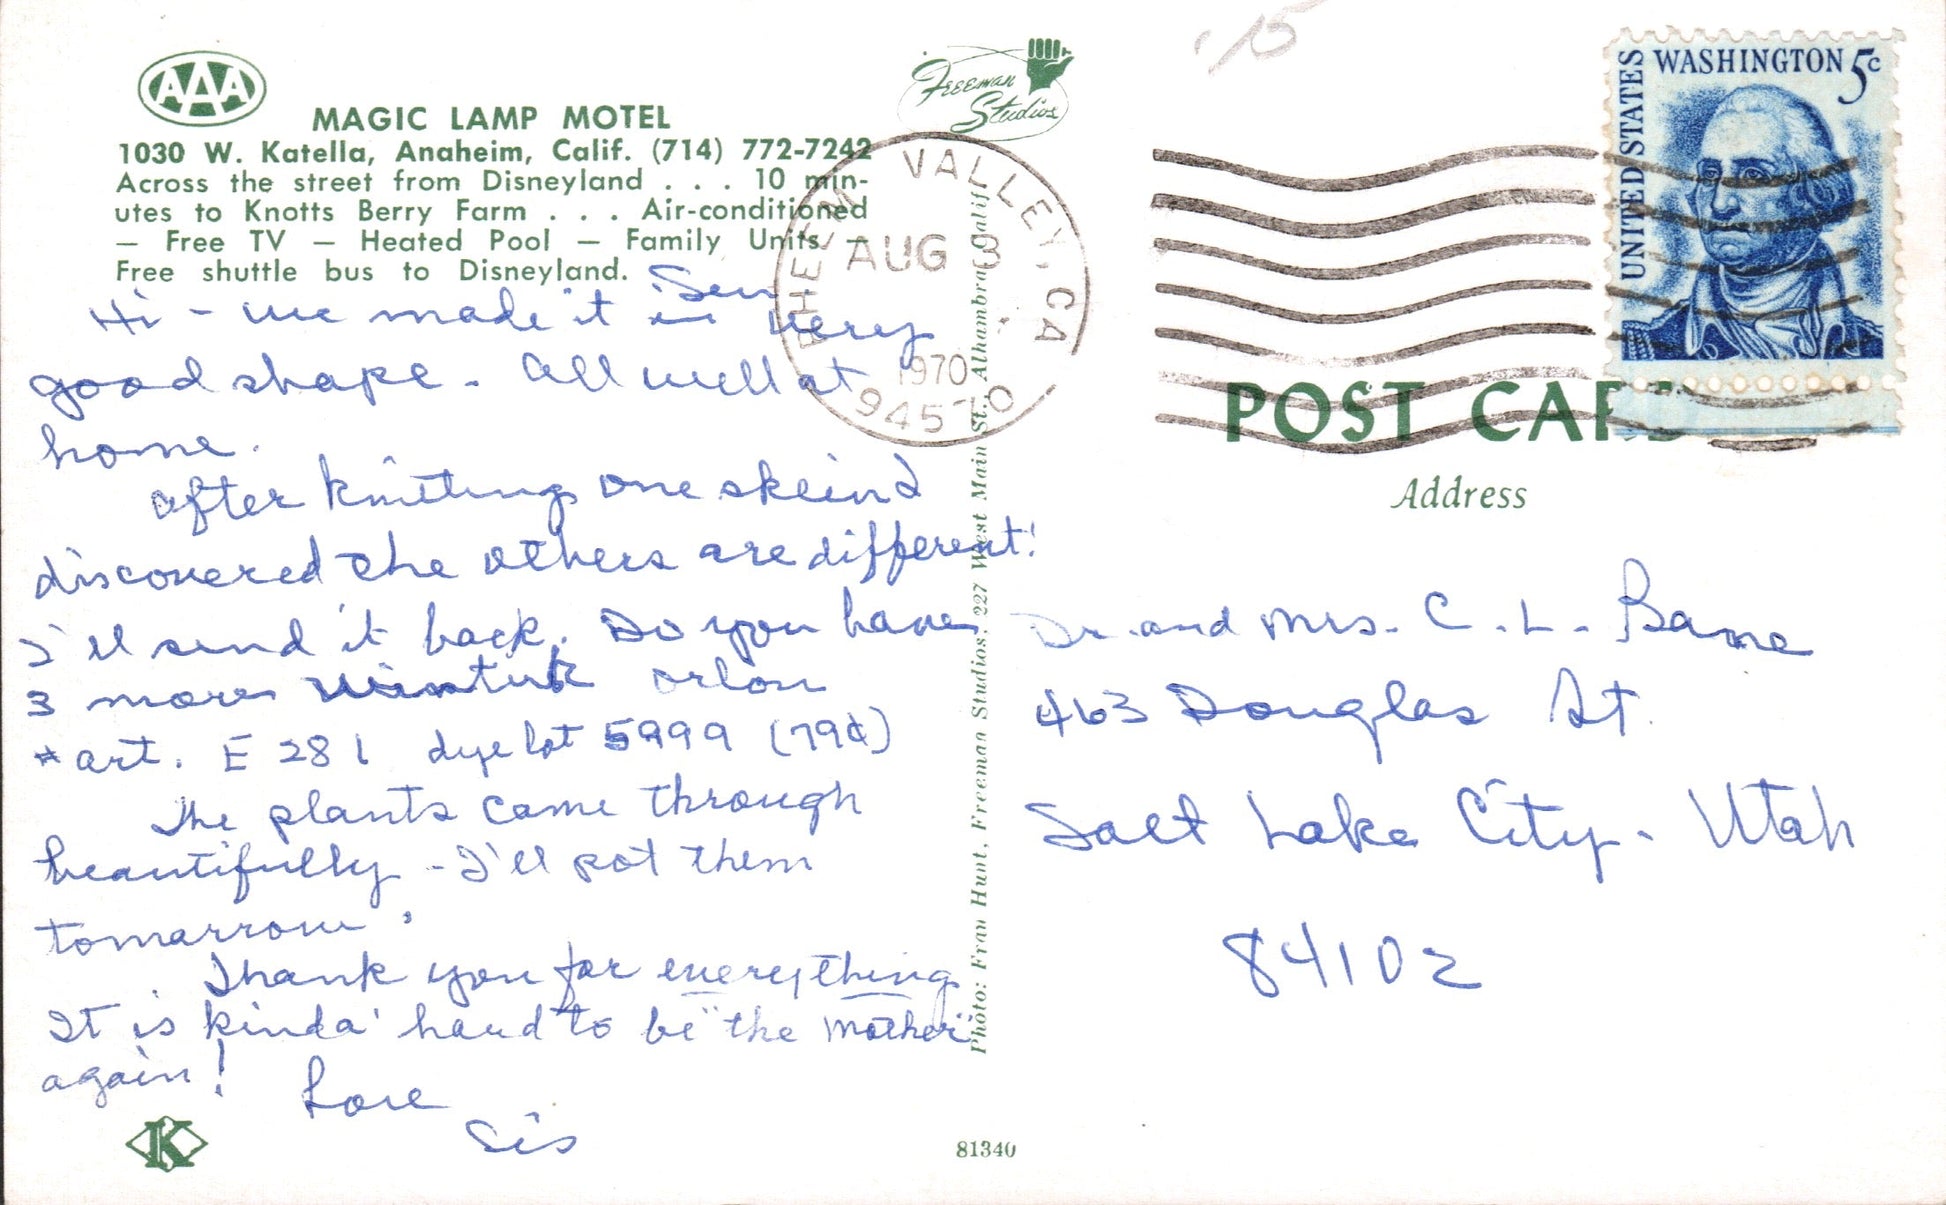 AAA
MAGIC LAMP MOTEL
1030 W. Katella, Anaheim, Calif. (714) 772-7242
Across the street from Disneyland . . . 10 min-
utes to Knotts Berry Farm . . . Air-conditioned
— Free TV — Heated Pool — Family Units —
Free shuttle bus to Disneyland.
Sun
Hi - we made it in very
good shape - all well at
home.
after knitting one skeind
discovered the others are different!
I'll send it back. Do you have
3 more Wintuk orlon
* art. E 281 dye lot 5999 (79¢)
The plants came through
beautifully - I'll pot them
tomarrow.
Thank you for everything
It is kinda' hard to be "the mother"
again!
Love
Sis
K
Freeman Studios
Photo: Fran Hunt, Freeman Studios, 227 West Main St., Alhambra, Calif.
81340
RHEEM VALLEY, CA
AUG 3
1970
94570
.15
UNITED STATES
WASHINGTON 5c
POST CARD
Address
Dr. and Mrs. C. L. Bame
463 Douglas St.
Salt Lake City - Utah
84102